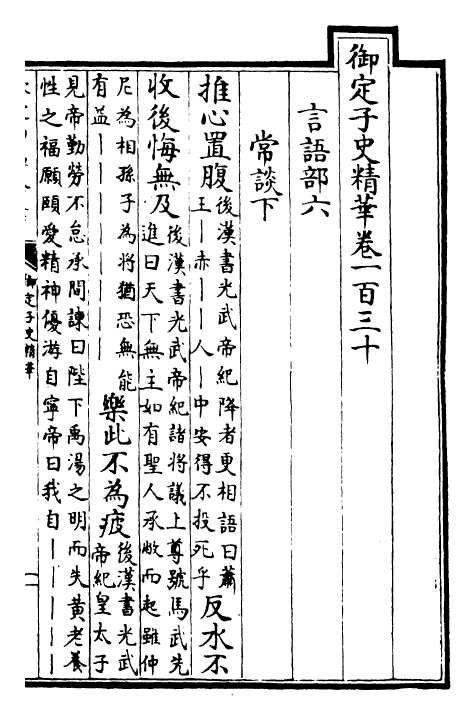 御定子史精華卷一百三十
言語部六
常談下
推心置腹後漢書光武帝紀降者更相語曰蕭
王丨赤丨丨人丨中安得不投死乎反水不
收後悔無及後漢書光武帝紀諸將議上尊號馬武先
進曰天下無主如有聖人承敝而起雖仲
尼為相孫子為將猶恐無能
有益丨丨丨丨丨丨丨丨樂此不為疲後漢書光武
帝紀皇太子
見帝勤勞不怠承間諫曰陛下禹湯之明而失黃老養
性之福願頤愛精神優游自寧帝曰我自丨丨丨丨丨
御定子史精華